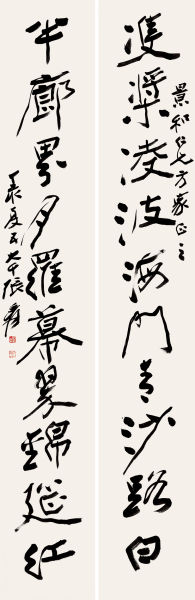 景和仁兄方家正之
雙槳淩波海門青沙路白
半廊界月羅幕翠錦筵紅
亥夏五大千張爰